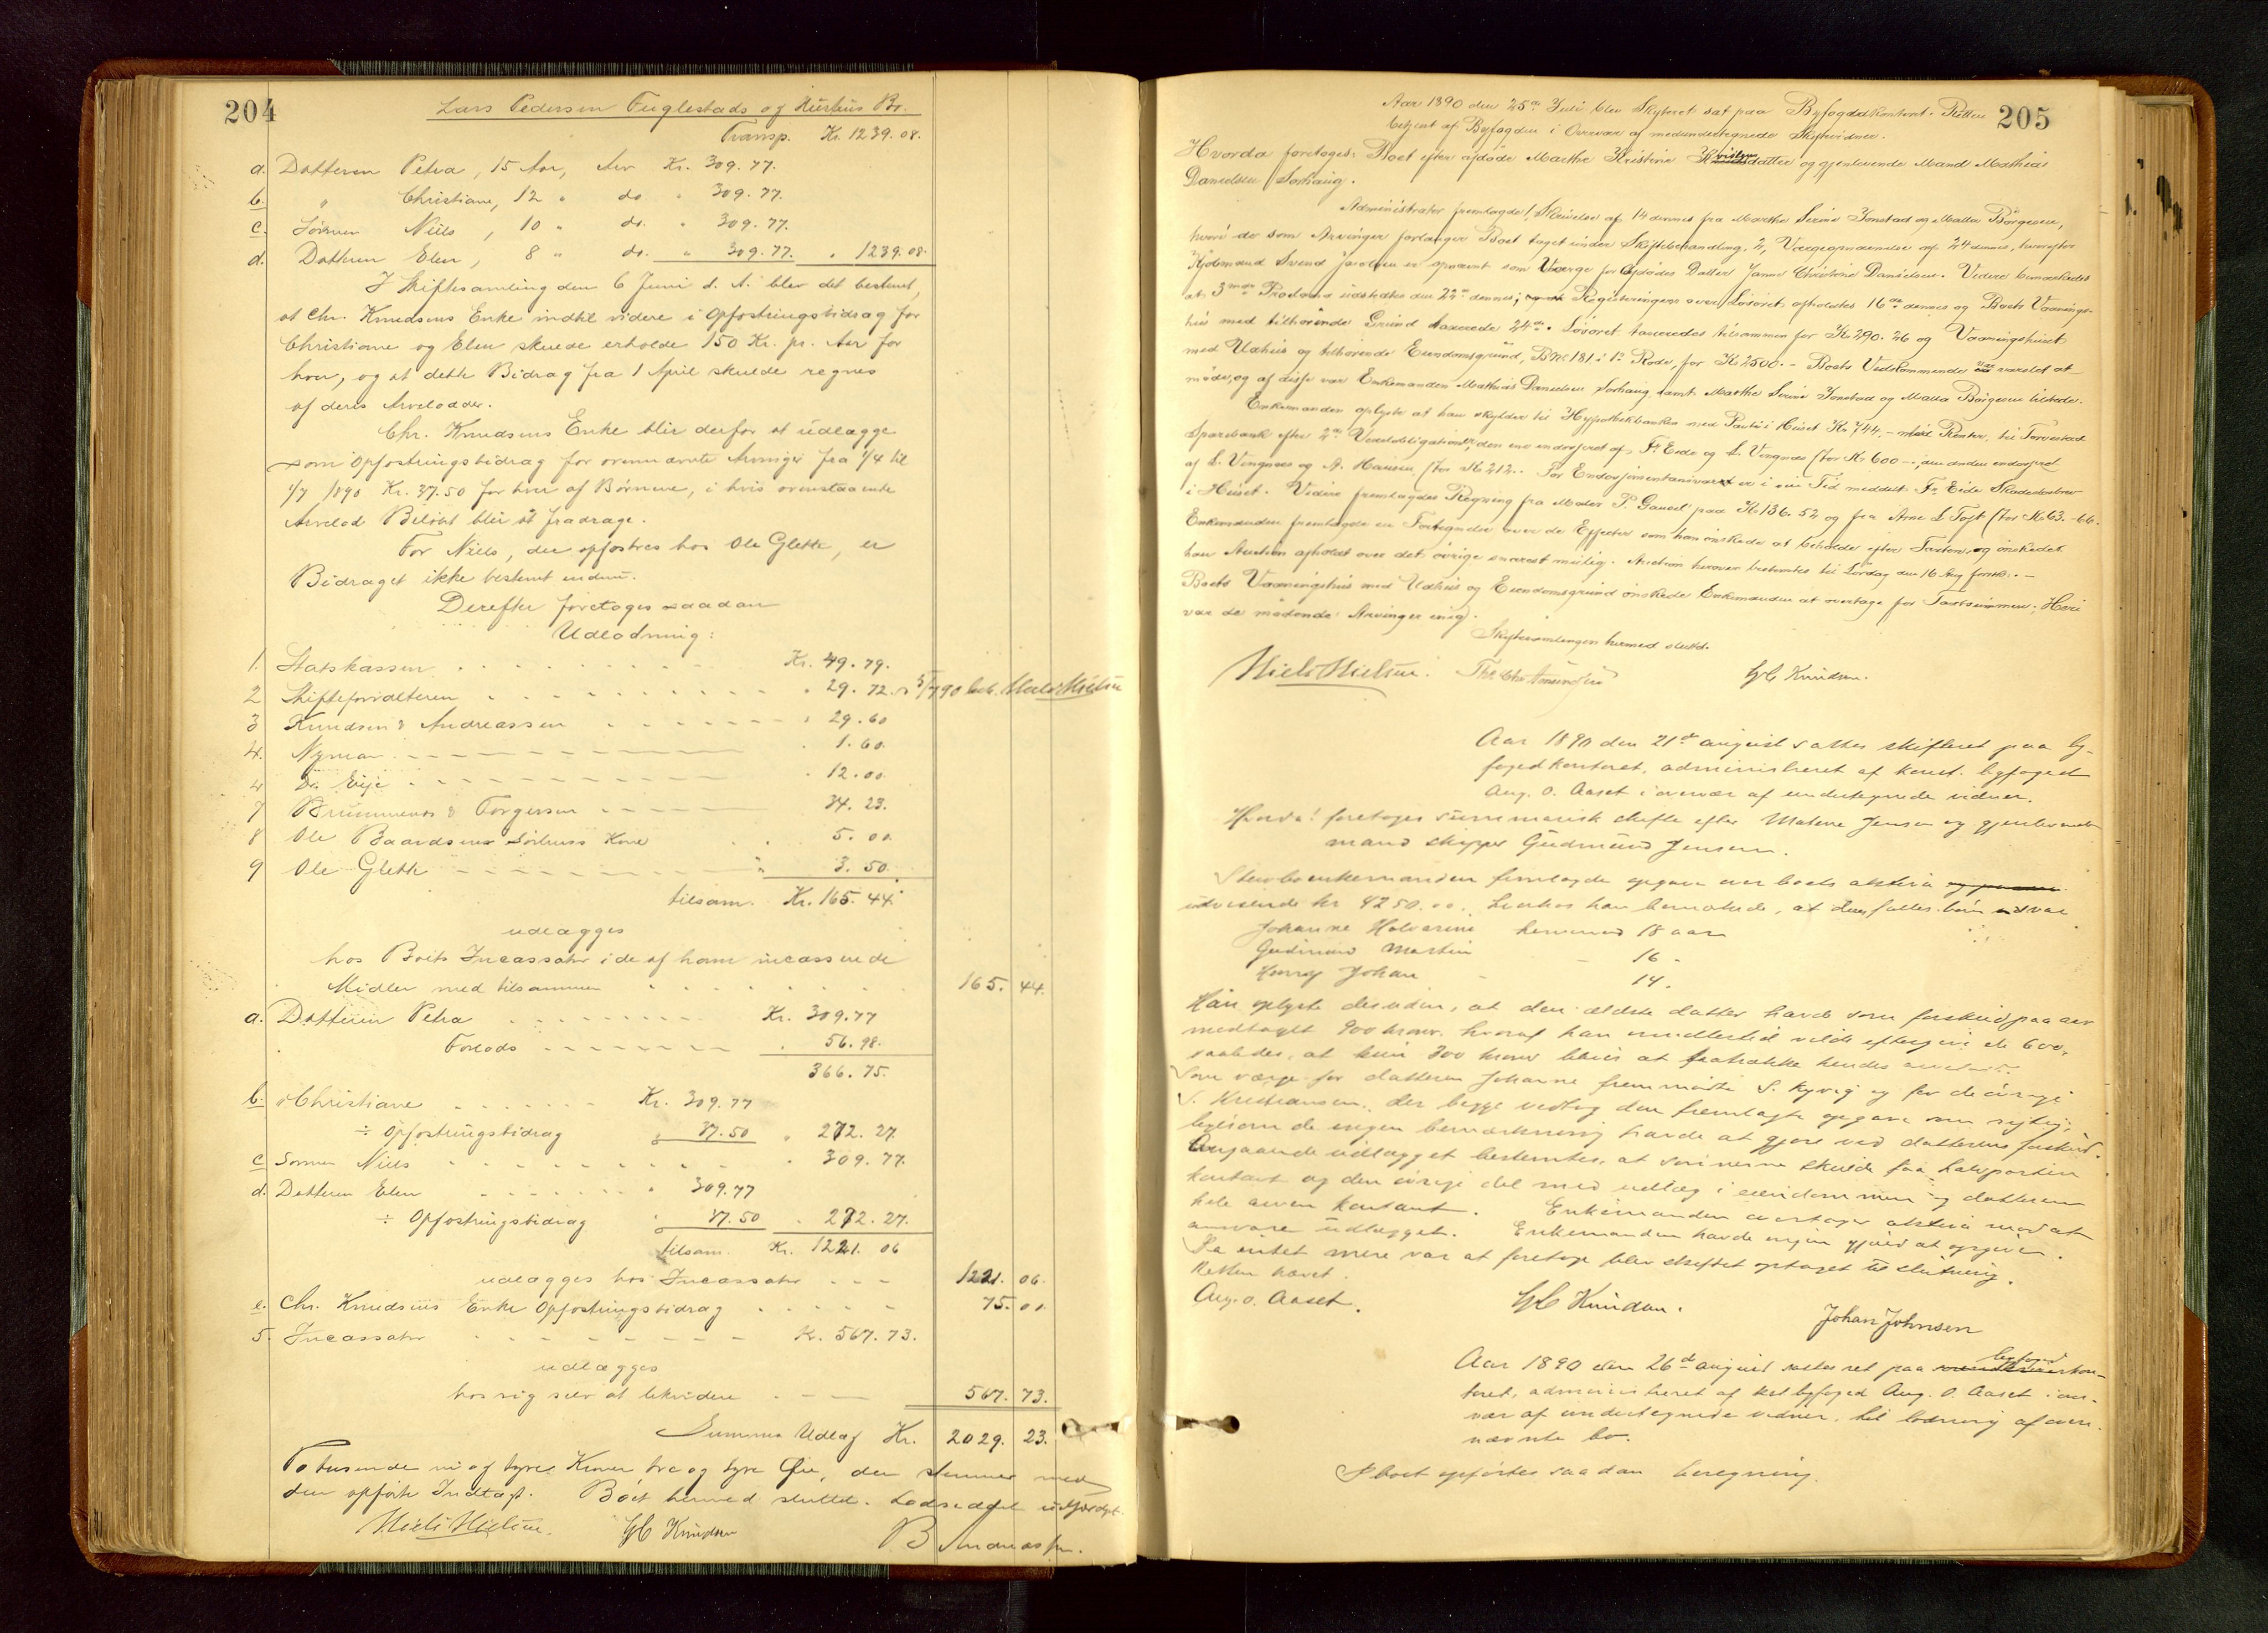 204
Lars Pedersen Fuglestads og Hustrus Bo.
Transp. Kr. 1239.08.
a. Datteren Petra, 15 Aar, Arv Kr. 309.77.
b. " Christiane, 12 " do " 309.77.
c. Sønnen Niels, 10 " do. " 309.77.
d. Datteren Elen, 8 " do. " 309.77. " 1239.08.
I Skiftesamling den 6 Juni d. A. blev det bestemt,
at Chr. Knudsens Enke indtil videre i Opfostringsbidrag for
Christiane og Elen skulde erholde 150 Kr. pr. Aar for
hver, og at dette Bidrag fra 1 April skulde regnes
af deres Arvelodder.
Chr. Knudsens Enke blir derfor at udlægge
som Opfostringsbidrag for ovennævnte Arvinger fra 1/4 til
1/7 1890 Kr. 37.50 for hver af Børnene, i hvis ovenstaaende
Arvelod Beløbet blir at fradrage.
For Niels, der opfostres hos Ole Glette, er
Bidraget ikke bestemt endnu.
Derefter foretoges saadan
Udlodning:
1. Statskassen Kr. 49.79.
2 Skifteforvalteren " 29.72. 5/7 90 bet. Niels Nielsen
3 Knudsen & Andreassen " 29.60
4. Nyman " 1.60.
4 Dr. Eije " 12.00.
7 Brummenæs & Torgersen 34.23.
8 Ole Baardsens Sørhuus Kone 5.00.
9 Ole Glette " 3.50.
tilsam. Kr. 165.44.
udlægges
hos Boets Incassator i de af ham incasserede
Midler med tilsammen 165.44.
a. Datteren Petra Kr. 309.77
Forlods " 56.98.
366.75.
b. " Christiane Kr. 309.77
÷ Opfostringsbidrag " 37.50 " 272.27.
c Sønnen Niels " 309.77.
d. Datteren Elen " 309.77
÷ Opfostringsbidrag " 37.50 " 272.27.
tilsam. Kr. 1221.06
udlægges hos Incassator 1221.06.
e. Chr. Knudsens Enke Opfostringsbidrag 75.00.
5. Incassator Kr. 567.73.
udlægges
hos sig selv at likvidere 567.73.
Summa Udlæg Kr. 2029.23.
To tusende ni og tyve Kroner tre og tyve Øre, der stemmer med
den opførte Indtægt. Boet hermed sluttet. Lodseddel udfærdiget.
Niels Nielsen. GC Knudsen B Andreassen.
205
Aar 1890 den 25de Juli blev Skifteret sat paa Byfogedkontoret. Retten
betjent af Byfogden i Overvær af medundertegnede Skiftevidner.
Hvorda foretoges: Boet efter afdøde Marthe Kristine datter og gjenlevende Mand Mathias
Danielsen Sørhaug.
Administrator fremlagde 1, Skrivelse af 14 dennes fra Marthe Serine Ionstad og Malla Børgesen,
hvori de som Arvinger forlanger Boet taget under Skiftebehandling, 2, Værgeopnævnelse af 24 dennes, hvorefter
Kjøbmand Svend Jacobsen er opnævnt som Værge for Afdødes Datter Janne Christine Danielsen. Videre bemærkedes
at 3 Proclama udstedtes den 22de dennes; Registreringen over Løsøret afholdtes 16de dennes og Boets Vaanings-
hus med tilhørende Grund taxerede 24de. Løsøret taxeredes tilsammen for Kr 290.26 og Vaaningshuset
med Udhus og tilhørende Eiendomsgrund, B Nr 181 i 1ste Rode, for Kr 2500.- Boets Vedkommende var varslet at
møde, og af disse var Enkemanden Mathias Danielsen Sørhaug samt Marthe Serine Ionstad og Malla Børgesen tilstede.
Enkemanden oplyste at han skylder til Hypothekbanken med Pant i Huset Kr 744,- Renter, til Torvestad
Sparebank efter 2de Vexelobligationer, den ene endosseret af Fr. Eide og L. Vengnæs stor Kr 600-, den anden endosseret
af L. Vengnæs og A. Hansen stor Kr 212.- For Endossementansvaret er i sin Tid meddelt Fr. Eide Skadesløsbrev
i Huset. Videre fremlagdes Regning fra Maler P. Gausel paa Kr 136.52 og fra Arne L Toft stor Kr 63.66.
Enkemanden fremlagde en Fortegnelse over de Effecter som han ønskede at beholde efter Taxten, og ønskedet
han Auction afholdt over det øvrige snarest mulig. Auction herover bestemtes til Lørdag den 16 Aug førstk. -
Boets Vaaningshus med Udhus og Eiendomsgrund ønskede Enkemanden at overtage for Taxtsummen; Heri
var de mødende Arvinger enig.
Skiftesamlingen hermed sluttet.
Niels Nielsen. GC Knudsen.
Aar 1890 den 21de august sattes skifteret paa by-
fogedkontoret, administreret af konst. byfoged
Aug. O. Aaset i overvær af undertegnede vidner.
Hvorda! foretoges summarisk skifte efter Malene Jensen og gjenlevende
mand skipper Gudmund Jensen.
Sterboenkemanden fremlagde opgave over boets aktiva
udvisende kr 4250.00. Likeså han bemærkede, at deres fælles børn var
Johanne Halvarine henimod 18 aar
Gudmund Martin - 16 -
Henry Johan - 14.
Han oplyste desuden, at den ældste datter havde som forskud paa arv
modtaget 900 kroner, hvoraf han imidlertid vilde eftergive de 600,
saaledes, at kun 300 kroner bliver at fratrække hendes
Som værge for datteren Johanne fremmødte S. Kyvig og for de øvrige
S. Kristiansen, der begge vedtog den fremlagte opgave som rigtig,
ligesom de ingen bemærkning havde at gjøre ved datterens forskud.
Angaaende udlægget bestemtes, at sønnerne skulde faa halvparten
kontant og den øvrige del med udlæg i eiendommen og datteren
hele arven kontant. Enkemanden overtager aktiva mod at
ansvare udlægget. Enkemanden havde ingen gjæld at opgive.
Da intet mere var at foretage blev skiftet optaget til slutning.
Retten hævet.
Aug. O. Aaset. GC Knudsen.
Johan Johnsen
Aar 1890 den 26de august sattes ret paa byfoged kon-
toret, administreret af kst byfoged Aug. O. Aaset i over-
vær af undertegnede vidner, til slutning af oven-
nævnte bo.
I boet opførtes saadan beregning.